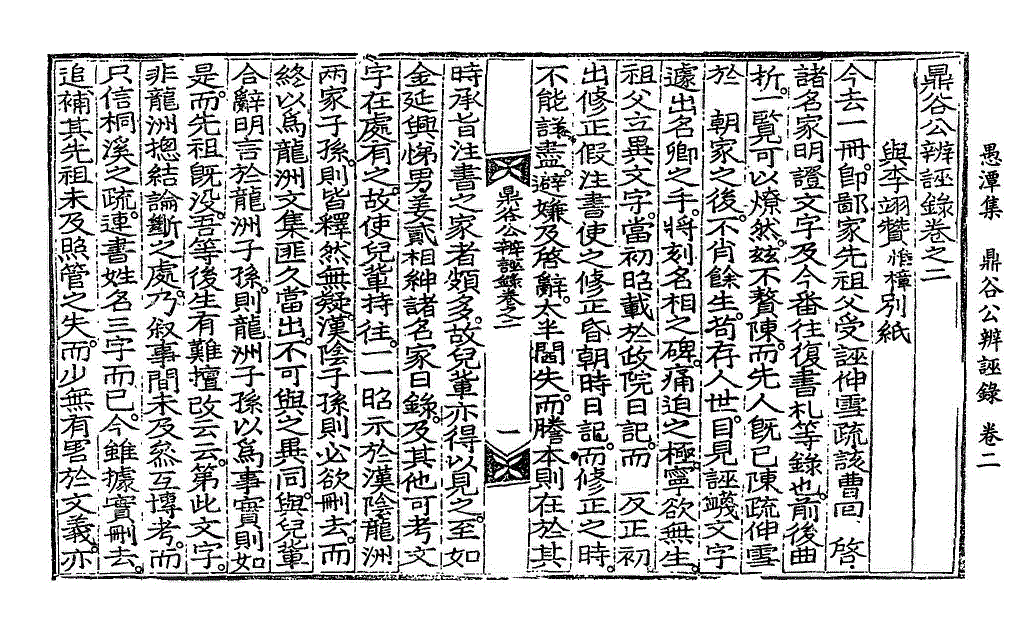 愚潭集　鼎谷公辨誣錄　卷二
鼎谷公辨誣錄卷之二
與李翊贊惟樟別紙
今去一冊。卽鄙家先祖父受誣伸雪疏該曹回　啓
諸名家明證文字及今番往復書札等錄也。前後曲
折。一覽可以燎然。玆不贅陳。而先人旣已陳疏伸雪
於　朝家之後。不肖餘生。苟存人世。目見誣衊文字
遽出名卿之手。將刻名相之碑。痛迫之極。寧欲無生。
祖父立異文字。當初昭載於政院日記。而　反正初
出修正假注書使之修正昏朝時日記。而修正之時。
不能謹盡。避嫌及啓辭。太半闕失。而謄本則在於其
鼎谷公辨誣錄卷之二　一
時承旨注書之家者頗多。故兒輩亦得以見之。至如
金延興悌男,姜貳相紳諸名家日錄。及其他可考文
字在處有之。故使兒輩持往。一一昭示於漢陰,龍洲
兩家子孫。則皆釋然無疑。漢陰子孫則必欲刪去。而
終以爲龍洲文集匪久當出。不可與之異同。與兒輩
合辭明言於龍洲子孫。則龍洲子孫以爲事實則如
是。而先祖旣沒。吾等後生有難擅改云云。第此文字。
非龍洲摠結論斷之處。乃敍事間未及參互博考。而
只信桐溪之疏。連書姓名三字而已。今雖據實刪去。
追補其先祖未及照管之失。而少無有害於文義。亦